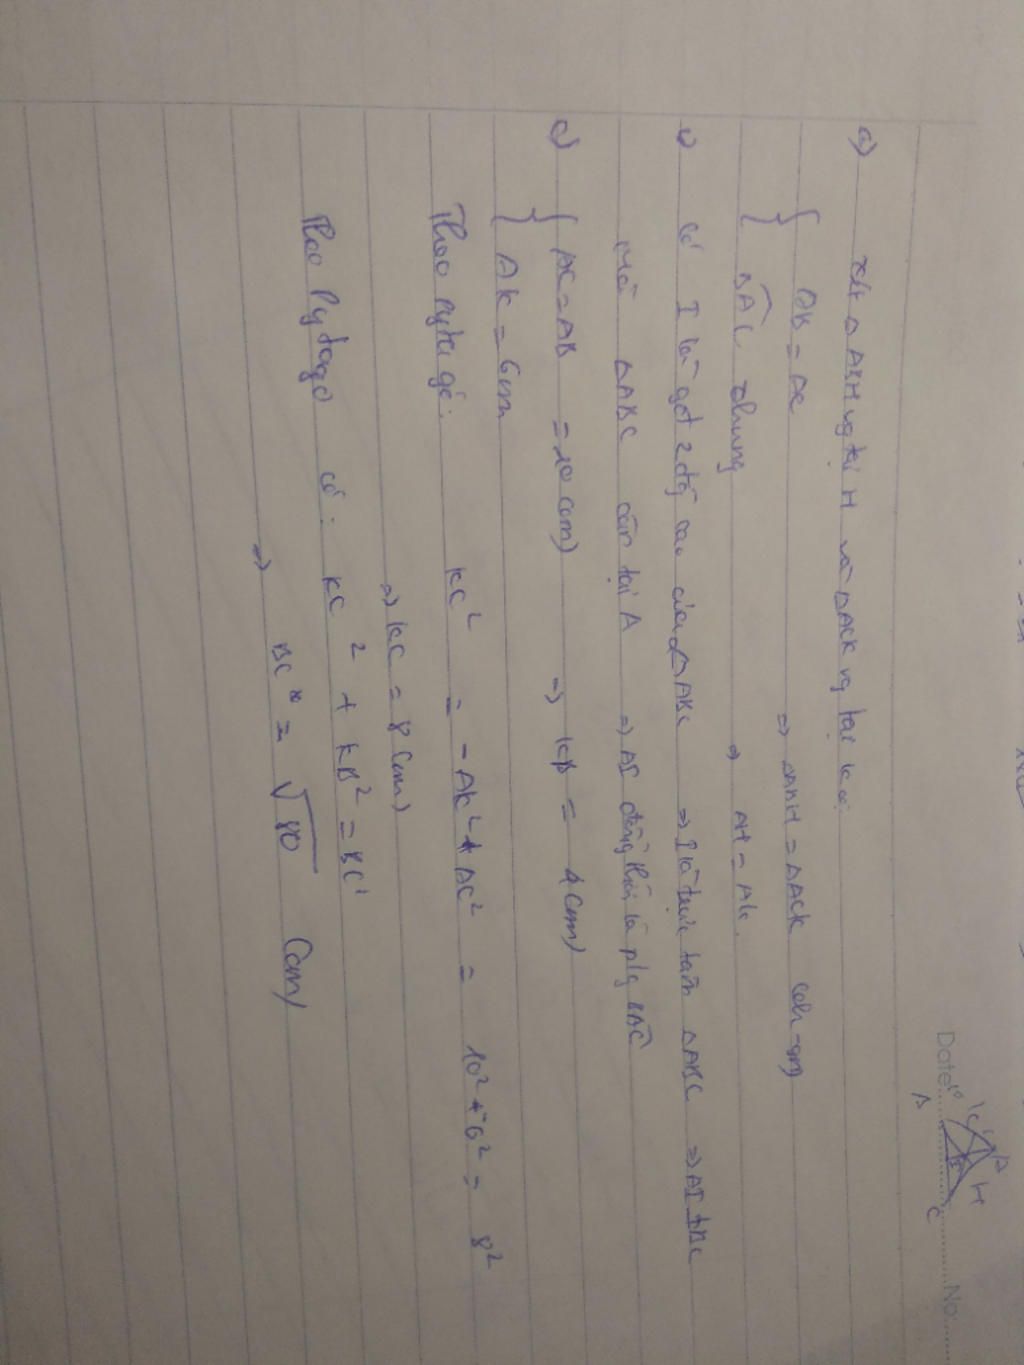 Date: No:
A
H
C
a) xét △ ABH vg tại H và △ACK vg tại K có:
AB = AC
=> △ABH = △ACK (ch-gn)
BAC chung => AH = AK.
b) Có I là gđ 2 đg cao của △ABC => I là trực tâm △ABC => AI ⊥ BC
Mà △ABC cân tại A => AI đồng thời là p/g BAC
c) AC = AB = 10 (cm) => KB = 4 (cm)
AK = 6cm
Theo Pytago: KC² = - AK² + AC² = 10² - 6² = 8²
=> KC = 8 (cm)
Theo Pytago có: KC² + KB² = BC²
=> BC = √80 (cm)